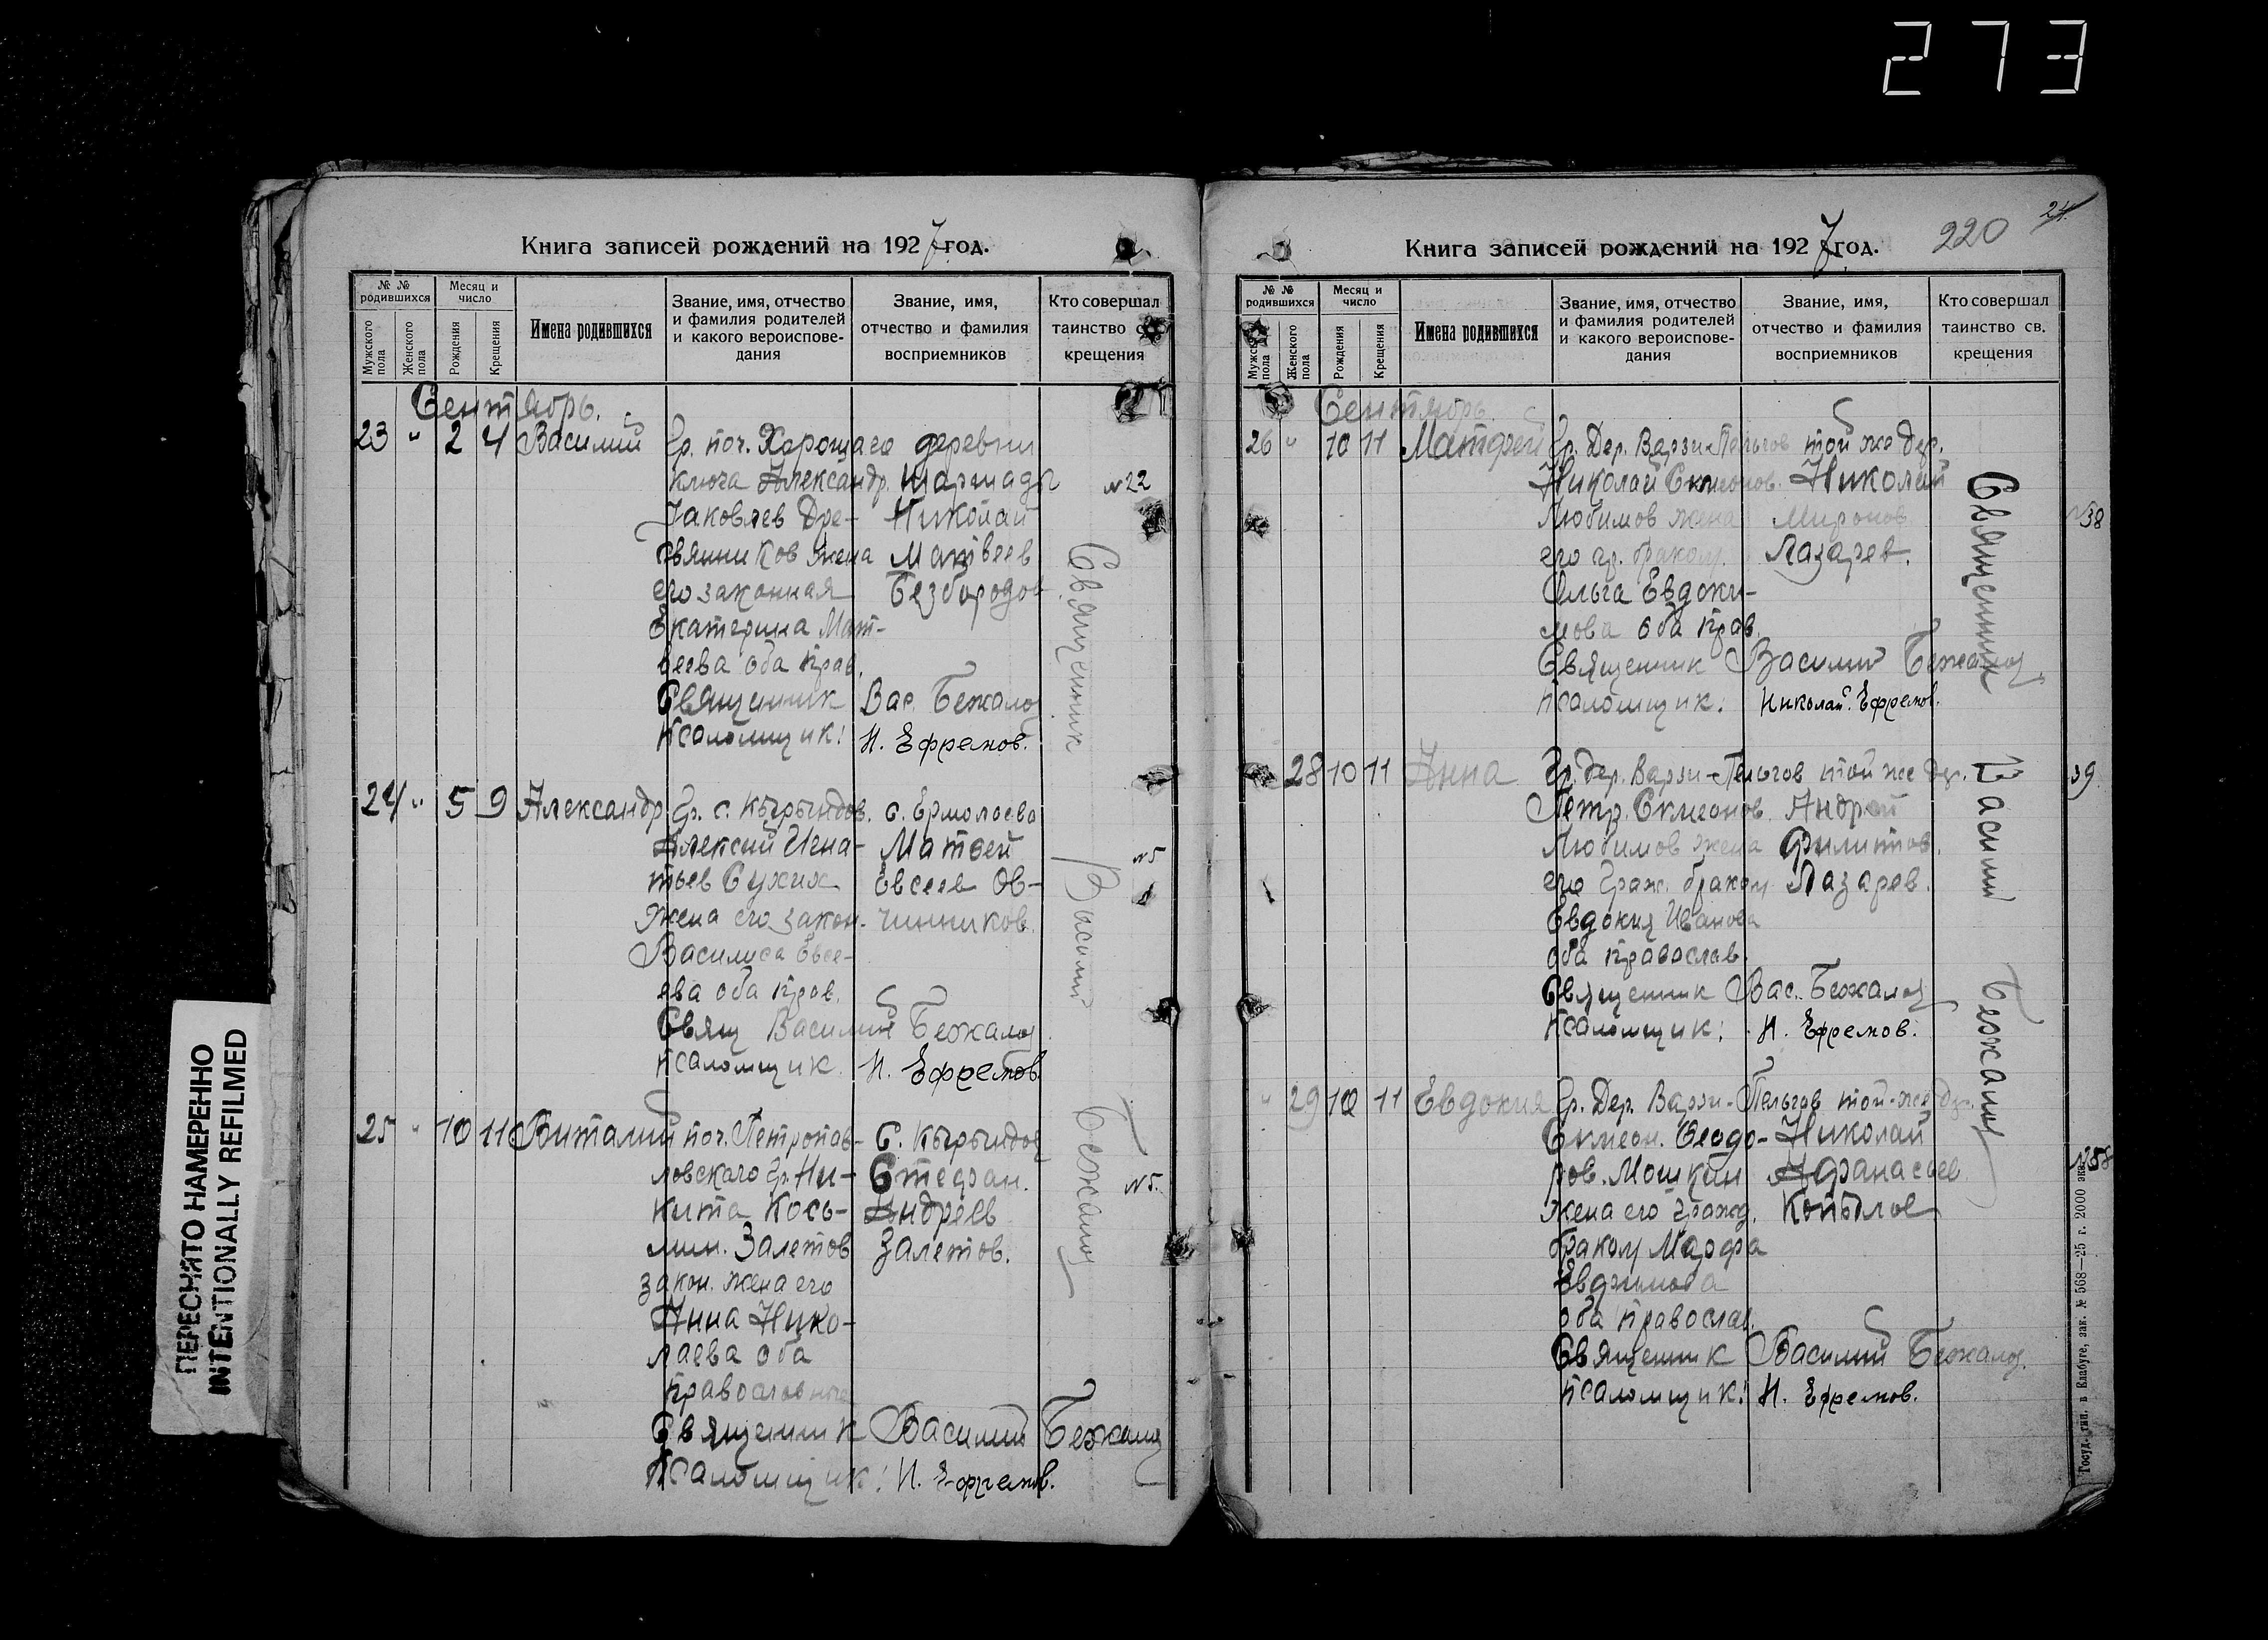 273
Книга записей рождений на 1927 год.
№ № родившихся
Мужского пола
Женского пола
Месяц и число
Рождения
Крещения
Имена родившихся
Звание, имя, отчество и фамилия родителей и какого вероиспове-дания
Звание, имя, отчество и фамилия восприемников
Кто совершал таинство св. крещения
Сентябрь.
23 " 2 4 Василий Гр. поч. Хорошаго деревни
ключа Александр. Шаршады №22
Яковлев Дре- Николай
вянников жена Матвеев
его законная Безбородов
Екатерина Мат-
веева оба прав.
Священник Вас. Бежалов
Псаломщик: Н. Ефремов.
24 " 5 9 Александр Гр. с. Кырындов. с. Ермолаево
Алексий Игна- Матвей №5
тьев Сухих Евсеев Ов-
жена его закон. чинников.
Василиса Евсе-
ева оба прав.
Свящ Василий Бежалов
Псаломщик. Н. Ефремов.
25 " 10 11 Виталий поч. Петропав- С. Кырындов
ловскаго Гр. Ни- Стефан. №5.
кита Кось- Андреев
мин. Залетов Залетов.
закон. жена его
Анна Нико-
лаева оба
православные
Священник Василий Бежалов
Псаломщик: Н. Ефремов.
Священник Василий Бежалов
220 24.
Книга записей рождений на 1927 год.
№ № родившихся
Мужск пола
Женского пола
Месяц и число
Рождения
Крещения
Имена родившихся
Звание, имя, отчество и фамилия родителей и какого вероиспове-дания
Звание, имя, отчество и фамилия восприемников
Кто совершал таинство св. крещения
Сентябрь.
26 " 10 11 Матфей Гр. Дер. Варзи-Пельгов той же дер.
Николай Симеонов. Николай
Любимов жена Миронов №38
его гр. браком. Лазарев.
Ольга Евдоки-
мова оба прав.
Священник Василий Бежалов
Псаломщик: Николай Ефремов.
28 10 11 Анна Гр. дер. Варзи-Пельгов той же дер. 39
Петр. Симеонов. Андрей
Любимов жена Филиппов.
его граж. браком Лазарев.
Евдокия Иванова
оба православ.
Священник Вас. Бежалов
Псаломщик: Н. Ефремов.
" 29 10 11 Евдокия Гр. Дер. Варзи-Пельгов той-же др.
Симеон. Феодо- Николай
ров. Мошкин Афанасьев №58
жена его гражд. Копылов
браком Марфа
оба православ.
Священник Василий Бежалов.
Псаломщик: Н. Ефремов.
Священник Василий Бежалов
Госуд. тип. в Елабуге, зак. № 568—25 г. 2000 экз.
ПЕРЕСНЯТО НАМЕРЕННО
INTENTIONALLY REFILMED